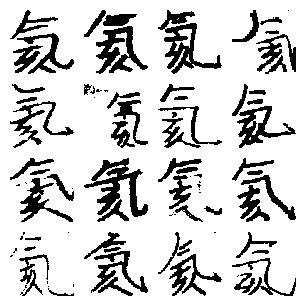 氦氦氦氦
氦氦氦氦
氦氦氦氦
氦氦氦氦